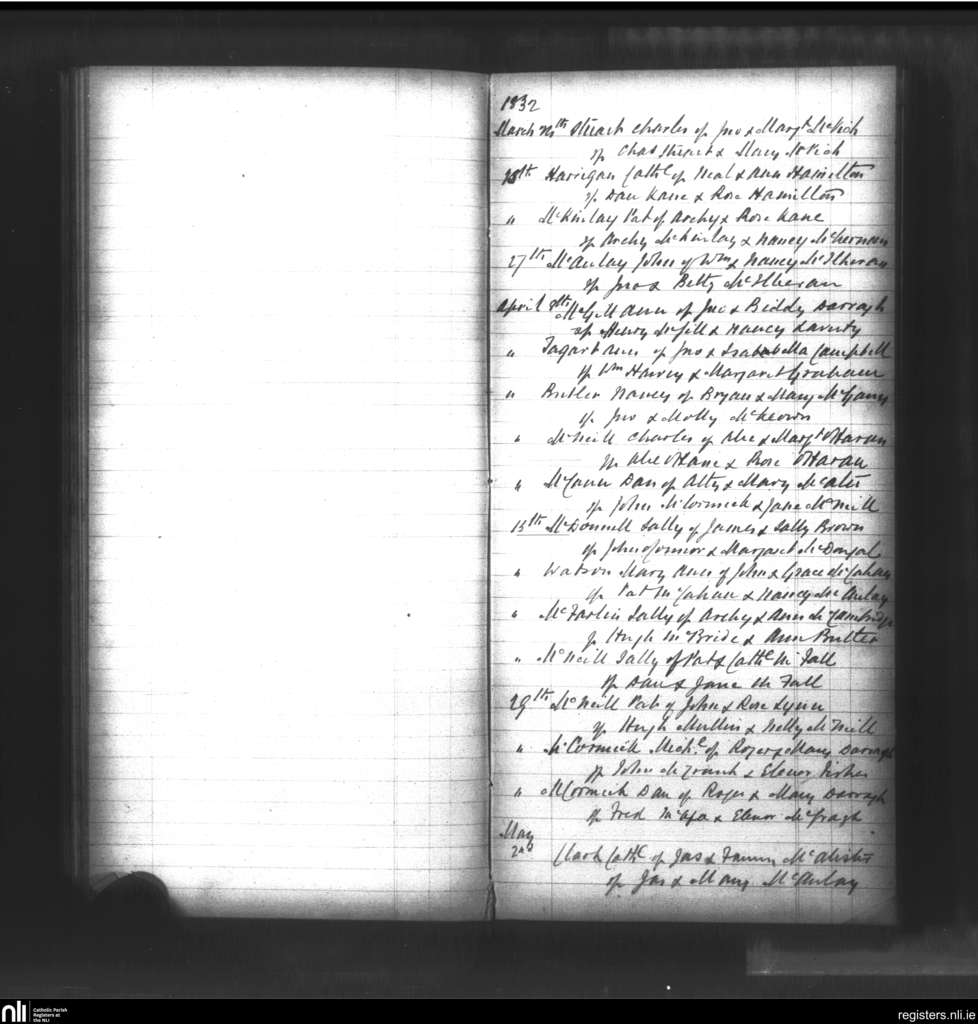 1832
March 24th Stuart Charles of Jno & Margt McVich
of Chas Stuart & Mary McVich
25th Harrigan Cathe of Neal & Ann Hamilton
of Dan Kane & Rose Hamilton
" McKinlay Pat of Archy & Rose Kane
of Archy McKinlay & Nancy McKernan
27th McAulay John of Wm & Nancy McIlheran
of Jno & Betty McIlheran
April 8th McGill Ann of Jno & Biddy Darragh
of Henry McGill & Nancy Laverty
" Tagart Ann of Jno & Isabella Campbell
of Wm Harvey & Margaret Graham
" Butler Nancy of Bryan & Mary
of Jno & Molly McKeown
" McNeill Charles of Alic & Margt OHaran
of Alic OHane & Rose OHaran
" McCann Dan of Atty & Mary
of John McCormick & Jane McNeill
15th McDonnell Sally of James & Sally Brown
of John oConnor & Margaret McDougal
" Watson Mary Ann of John & Grace McCahan
of Pat McCahan & Nancy McAulay
" McFarlin Sally of Archy & Ann McCambridge
of Hugh McBride & Ann Butler
" McNeill Sally of Pat & Cathe McFall
of Dan & Jane McFall
29th McNeill Pat of John & Rose Lynn
of Hugh Mullin & Nelly McNeill
" McCormick Michl of Roger & Mary Darragh
of John & Elenor Fisher
" McCormick Dan of Roger & Mary Darragh
of Fred McAfa & Elenor
May
2nd Clark Cathe of Jas & Fanny McAlister
of Jas & Mary McAulay
nli
Catholic Parish
Registers at
the NLI
registers.nli.ie